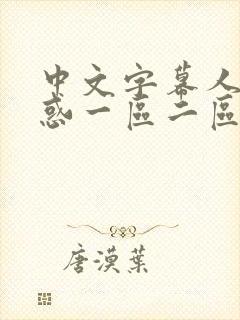 中文字幕人
惑一區二區
唐漠葉